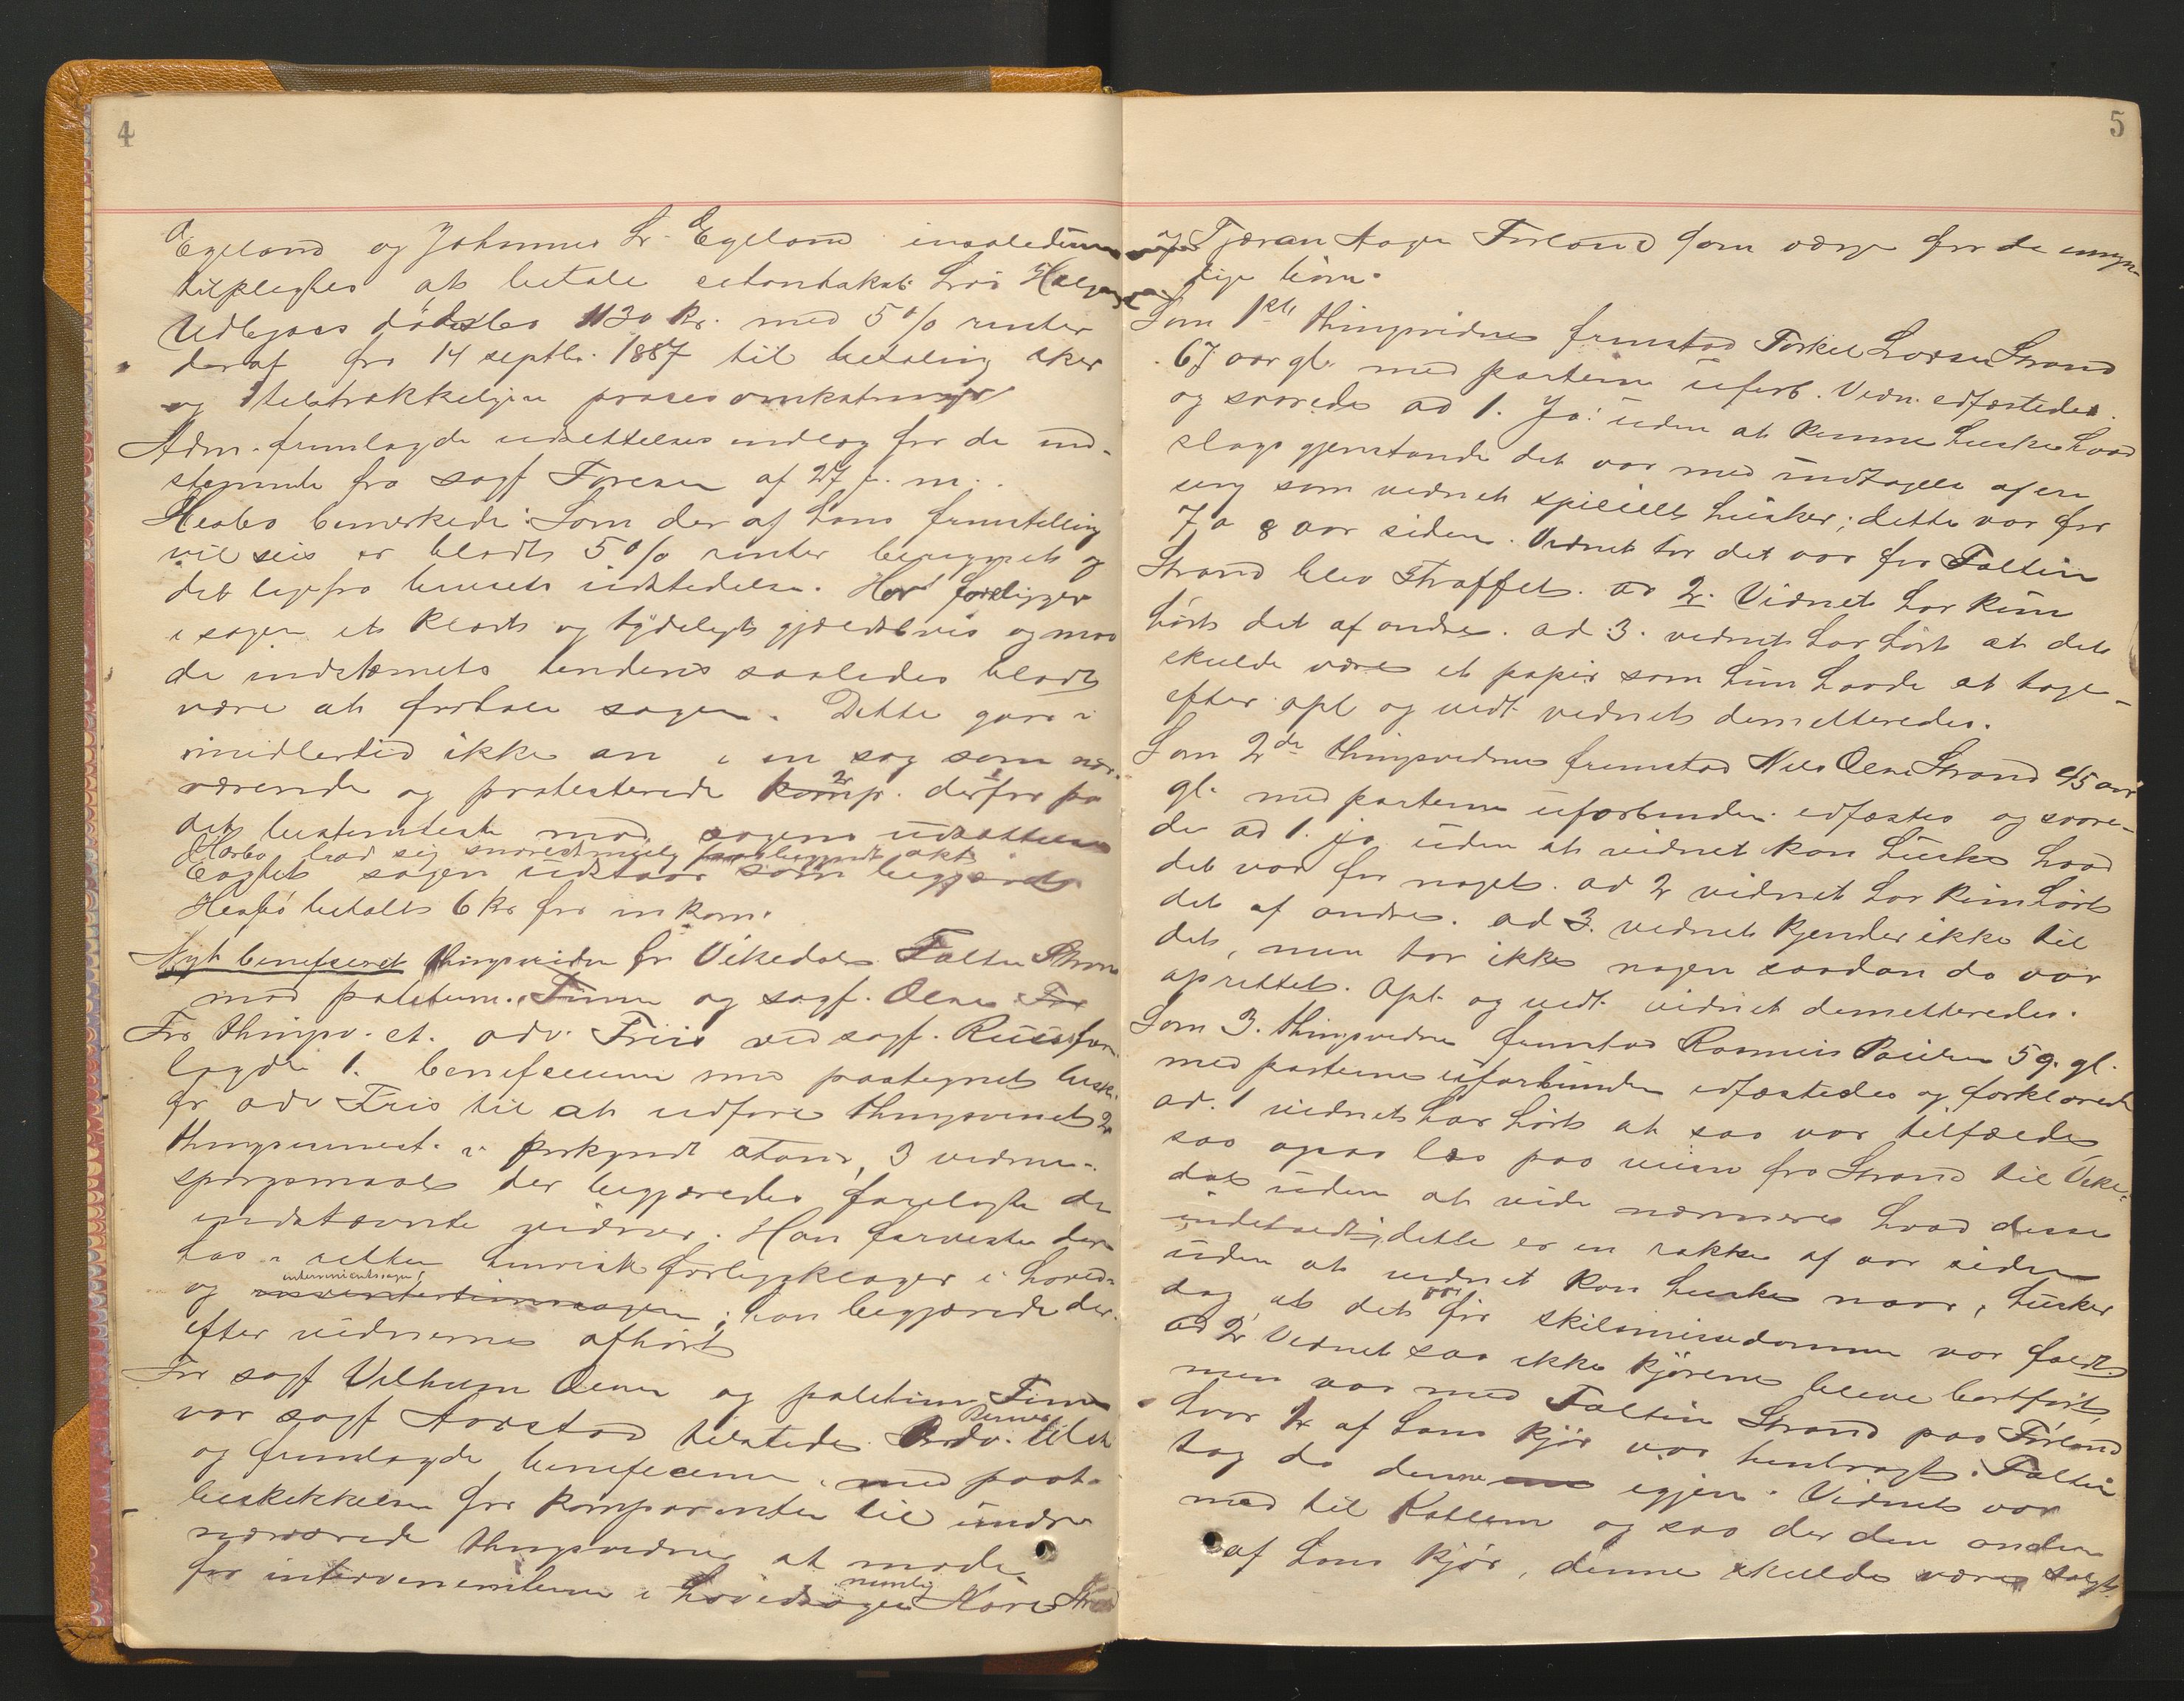 4
Egeland og Johannes Sr. Egeland insolidum
tilpligtes at betale citantskab Lars Helge
Udbjoas dødsbo 1130 kr. med 5 % renter
deraf fra 14 septbr. 1887 til betaling sker
og tilstrækkelige procesomkostninger
Adm. fremlagde udsettelses indlæg for de ind-
stevnte fra sagf Toresen af 27 f. m.
Heabø bemærkede: Som der af hans fremstilling
vil sees er blodt 5 % renter beregnet og
det ligefra bevisets udstedelse. Her foreligger
i sagen et klart og tydeligt gjældsbevis og maa
de indstevntes tendens saaledes blodt
være at forhale sagen. Dette gaar i
imidlertid ikke an i en sag som nær-
værende og protesterede komp. derfor paa
det bestemteste mod sagens udsættelse
Heabø bad sig snarestmulig beskr. akt
Eragtet sagen udstaar som begjæret
Heabø betalte 6 kr for inkam.
Nyt beneficeret thingsvidne fr Vikedal Faltin Strand
mod politim. Finne og sagf. Olsen
For thingsv. ct. adv. Friis ved sagf. Russ frem-
lagde 1. beneficium med paategnet besk.
for adv Friis til at udføre thingsvidnet 2
thingsvidnest. i forkyndt stand, 3 vidne-
spørgsmaal der begjæredes forelagte de
indstævnte vidner. Han henviste der
hos i retten til forligsklager i hoved-
og interventionssagen; han begjærede der-
efter vidnerne afhørt
For sagf Vilhelm Olsen og politim. Finne
var sagf Aarstad tilstede
og fremlagde beneficium med paat.
beskikkelse for komparenten til under
nærværende thingsvidne at møde
for intervenienterne i hovedsagen nemlig Kari Strand
5
og Tjeran Aagen Førland som værge for de umyn-
dige børn.
Som 1ste thingsvidne fremstod Torkel Larsen Strand
67 aar gl. med parterne uforb. Vidn. edfæstedes.
og svarede ad 1. Ja: uden at kunne huske hvad
slags gjenstande det var med undtagelse af en
seng som vidnet specielt husker; dette var for
7 a 8 aar siden. Vidnet tror det var før Faltin
Strand blev straffet. ad 2. Vidnet har kun
hørt det af andre. ad 3. vidnet har hørt at det
skulde være et papir som hun havde at tage
efter opl og vedt vidnet demitteredes.
Som 2de thingsvidne fremstod Nils Olsen Strand 45 aar
gl. med parterne uforbunden edfæstes og svare-
de ad 1. ja uden at vidnet kan huske hvad
det var for noget. ad 2 vidnet har kun hørt
det af andre. ad 3. vidnet kjender ikke til
det, men tror ikke nogen saadan da var
oprettet. Opl. og vedt. vidnet demitteredes.
Som 3. thingsvidne fremstod Rasmus Paulsen 59. gl.
med parterne uforbunden edfæstedes og forklarede
ad. 1 vidnet har hørt at saa var tilfælde
saa ogsaa læs paa veien fra Strand til Vike-
dal uden at vide nærmere hvad disse
indeholdt; dette er en række af aar siden
uden at vidnet kan huske naar, husker
dog at det var før skilsmissedommen var faldt.
ad 2 Vidnet saa ikke kjørene bleve bortført,
men var med Faltin Strand paa Førland
hvor 1 af hans kjør var henbragt. Faltin
tog da denne igjen. Vidnet var
med til Kallem og saa der den anden
af hans kjør, denne skulde være solgt